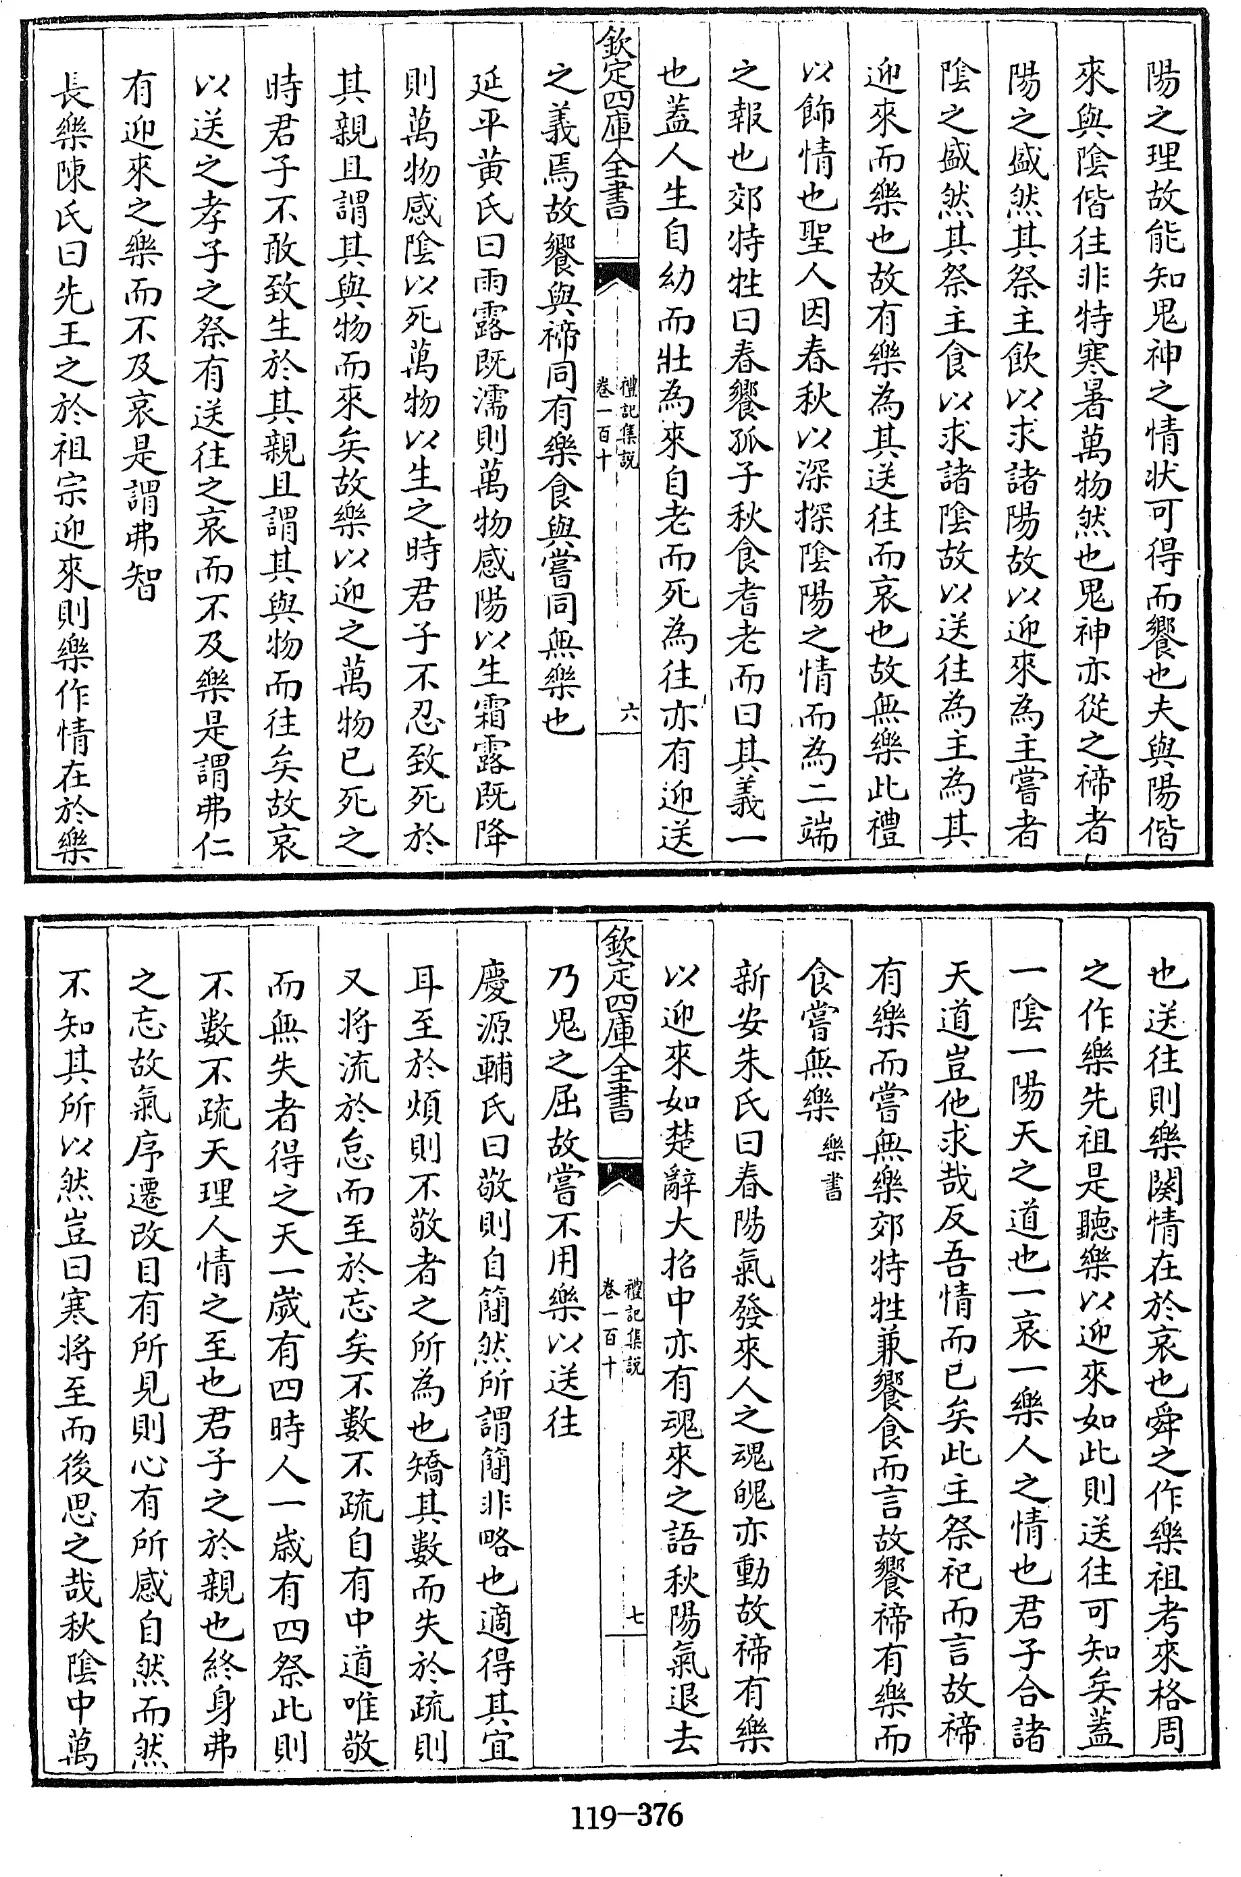 陽之理故能知鬼神之情狀可得而饗也夫與陽偕
來與陰偕往非特寒暑萬物然也鬼神亦從之禘者
陽之盛然其祭主飲以求諸陽故以迎來為主嘗者
陰之盛然其祭主食以求諸陰故以送往為主為其
迎來而樂也故有樂為其送往而哀也故無樂此禮
以飾情也聖人因春秋以深探陰陽之情而為二端
之報也郊特牲曰春饗孤子秋食耆老而曰其義一
也蓋人生自幼而壯為來自老而死為往亦有迎送
欽定四庫全書
禮記集説
卷一百十
六
之義焉故饗與禘同有樂食與嘗同無樂也
延平黄氏曰雨露既濡則萬物感陽以生霜露既降
則萬物感陰以死萬物以生之時君子不忍致死於
其親且謂其與物而來矣故樂以迎之萬物已死之
時君子不敢致生於其親且謂其與物而往矣故哀
以送之孝子之祭有送往之哀而不及樂是謂弗仁
有迎來之樂而不及哀是謂弗智
長樂陳氏曰先王之於祖宗迎來則樂作情在於樂
也送往則樂闋情在於哀也舜之作樂祖考來格周
之作樂先祖是聽樂以迎來如此則送往可知矣蓋
一陰一陽天之道也一哀一樂人之情也君子合諸
天道豈他求哉反吾情而已矣此主祭祀而言故禘
有樂而嘗無樂郊特牲兼饗食而言故饗禘有樂而
食嘗無樂樂書
新安朱氏曰春陽氣發來人之魂魄亦動故禘有樂
以迎來如楚辭大招中亦有魂來之語秋陽氣退去
欽定四庫全書
禮記集説
卷一百十
七
乃鬼之屈故嘗不用樂以送往
慶源輔氏曰敬則自簡然所謂簡非略也適得其宜
耳至於煩則不敬者之所為也矯其數而失於疏則
又將流於怠而至於忘矣不數不疏自有中道唯敬
而無失者得之天一歲有四時人一歲有四祭此則
不數不疏天理人情之至也君子之於親也終身弗
之忘故氣序遷改目有所見則心有所感自然而然
不知其所以然豈曰寒將至而後思之哉秋陰中萬
119-376